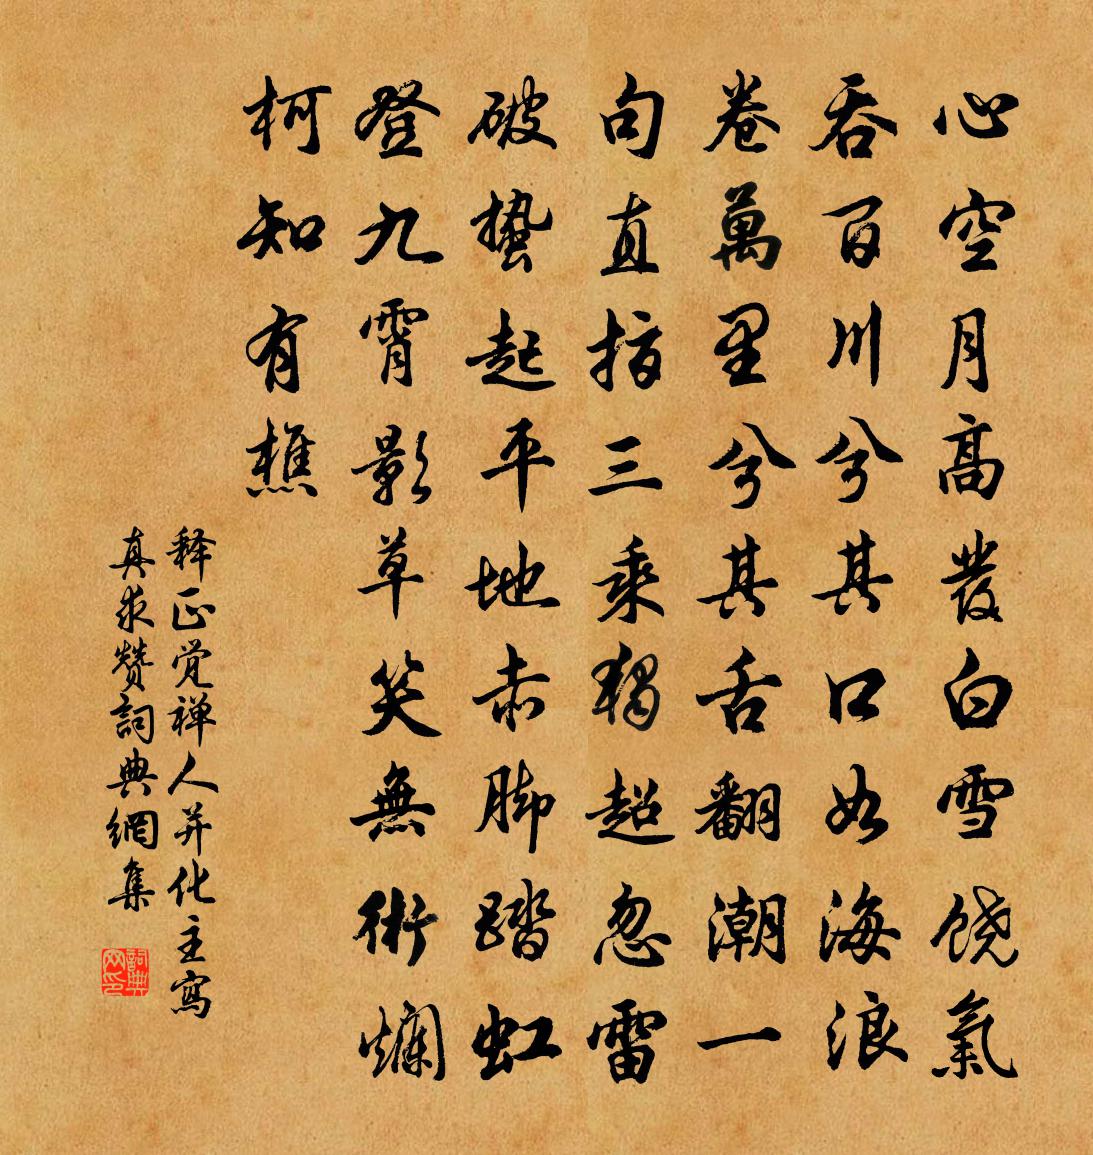 心空月高发白雪饶氣
吞百川兮其口如海浪
卷萬里兮其舌翻潮一
句直指三乘獨超忽雷
破蛰起平地赤脚踏虹
登九霄影草笑無術爛
柯知有樵
释正覚禅人并化主寫
真求赞詞典網集
詞典网印